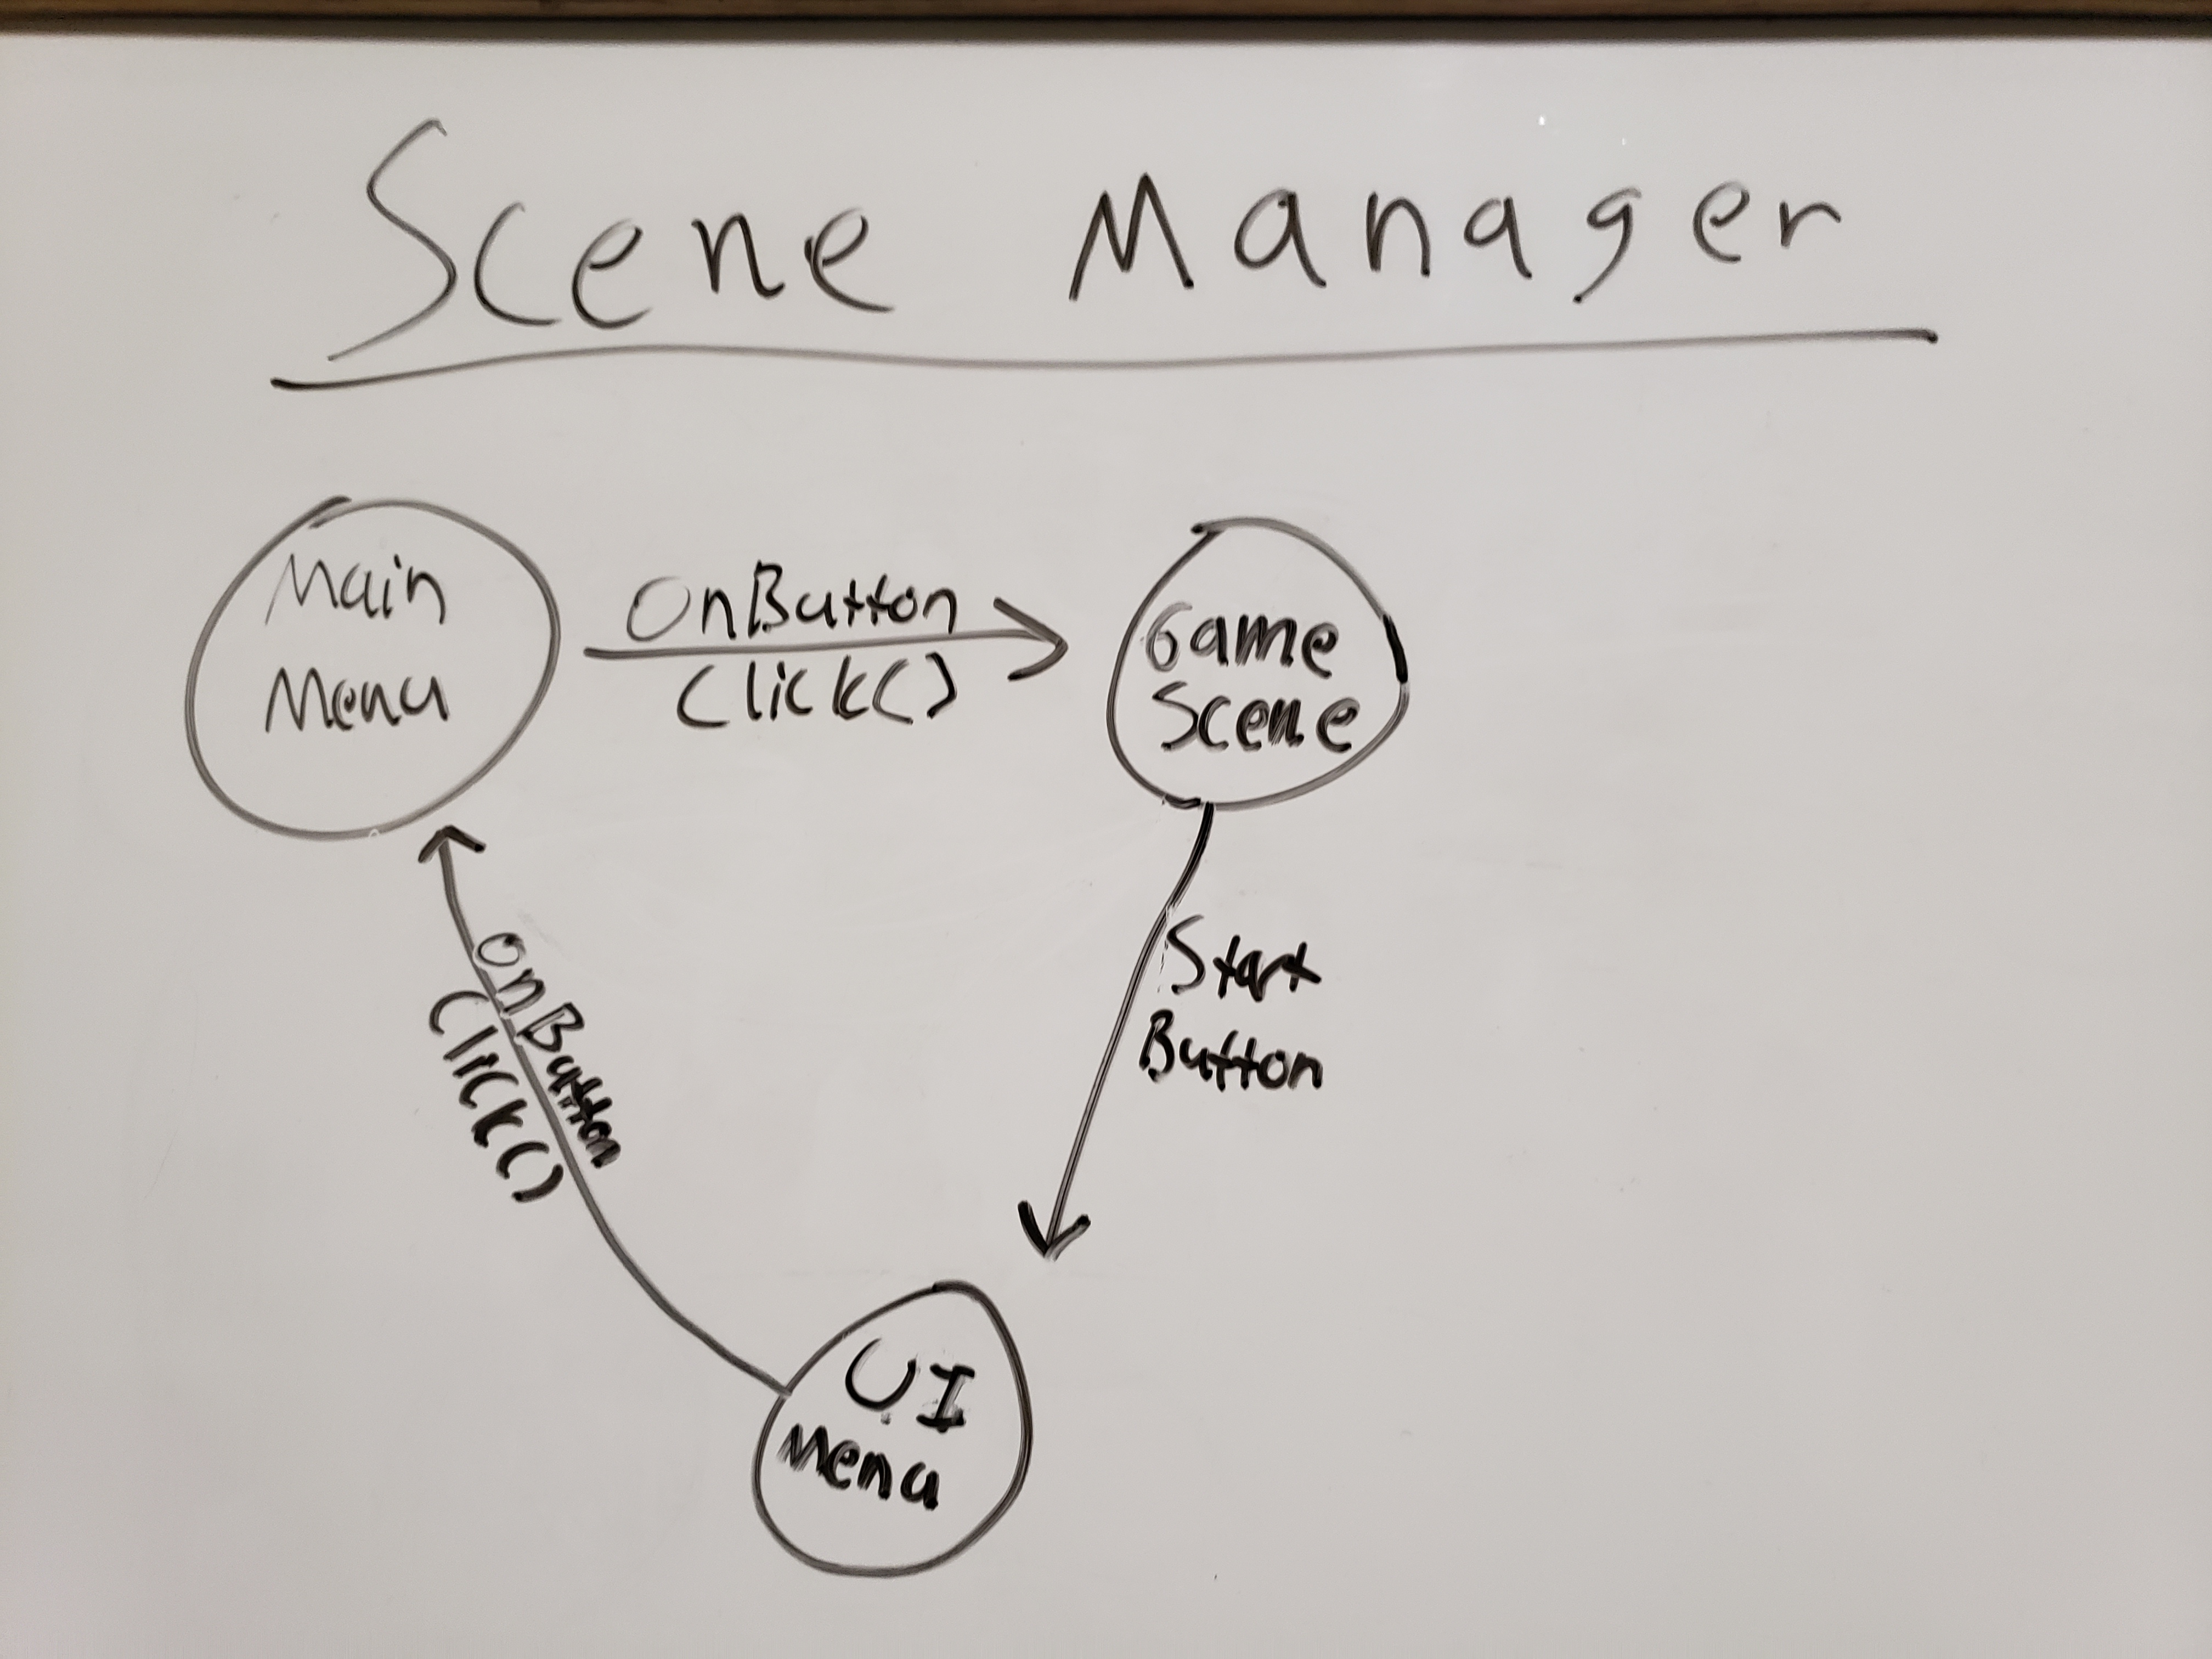 Scene Manager
Main
Menu
OnButton
Click()
Game
Scene
Start
Button
OnButton
Click()
UI
Menu